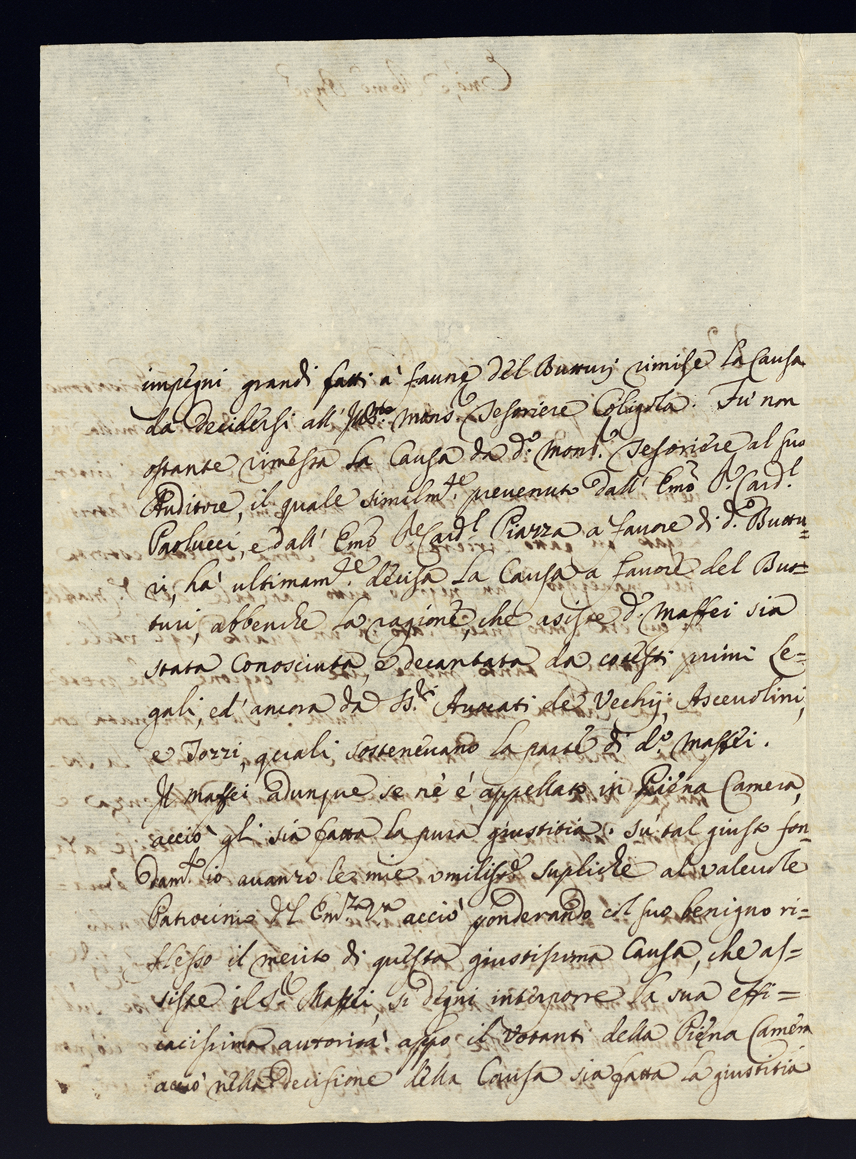 impegni grandi fatti à favore del Butturij rimise la Causa
da decidersi all' Monsr Tesoriere Coligola. Fù non
ostante rimessa la Causa da do. Monsr. Tesoriere al suo
Auditore, il quale similmte. prevenuto dall' Emo Sr. Cardl.
Paolucci, e dall' Emo Sr. Cardl. Piazza a favore di do. Buttu=
ri, hà ultimamte. decisa la Causa a favore del But=
turi, abbenche la ragione, che asiste do. Maffei sia
stata Conosciuta, e decantata da cotesti primi Le=
gali, ed' ancora da SSri. Avocati de Vechij, Ascevolini,
e Torri, quali sostenevano la parte di do. Maffei.
Il Maffei adunque se nè è appellato in Piena Camera,
acciò gli sia fatta la pura giustitia. Sù tal giusto fon=
damto. io avanzo le mie umilissime supliche al valevole
Patrocinio dell' Emza. Vra acciò ponderando col suo benigno ri=
flesso il merito di questa giustissima Causa, che as=
siste il Sr. Maffei, si degni interporre la sua effi=
cacissima autorità appo il Votanti della Piena Camera
acciò nella Decisione della Causa sia fatta la giustitia